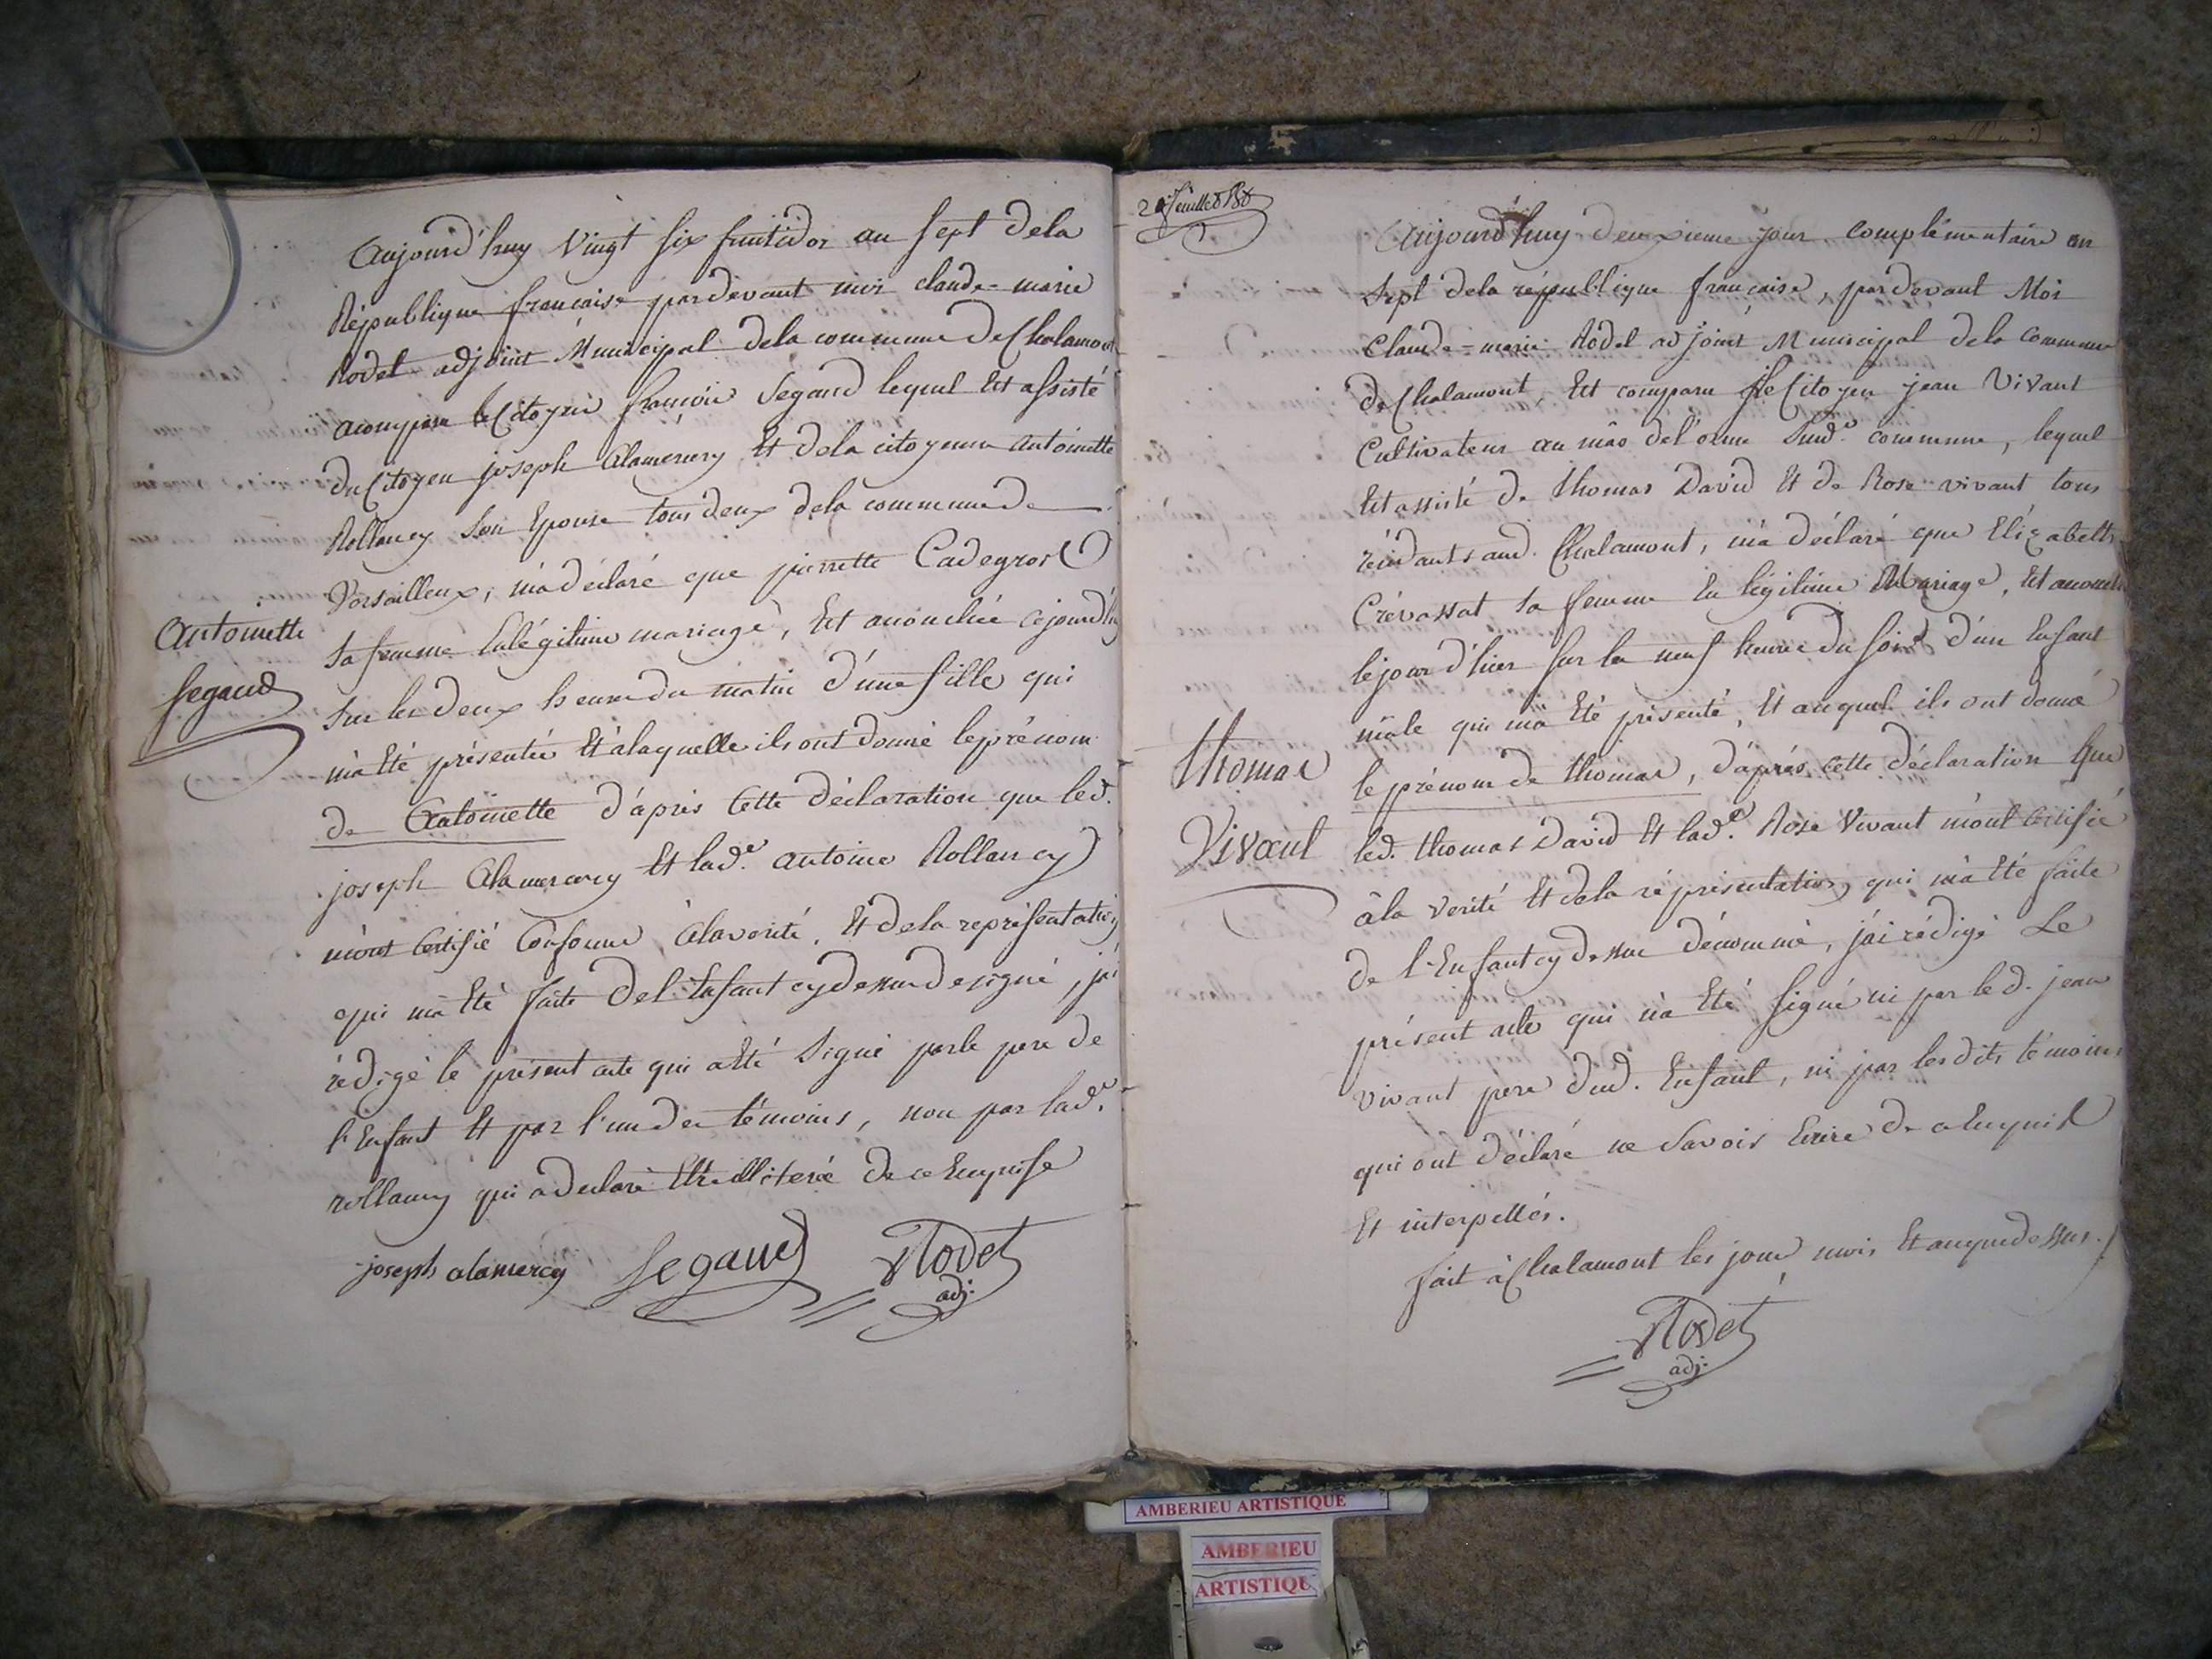 Aujourd'huy Vingt six fruitidor an sept dela
République francaise pardevant moi claude-marie
Rodet adjoint Municipal dela commune de Chalamont
acomparu le Citoyen francois Segaud lequel Est assisté
du Citoyen joseph alamercery Et dela citoyenne antoinette
Rollancy son Epouse tous deux dela commune de
Versailleux, m'a déclaré que pierrette Cadegros
sa femme En légitime mariage, Est acouchée cejourd'huy
sur les deux heures du matin d'une fille qui
m'a Eté présentée Et a laquelle ils ont donné le prénom
de Antoinette d'après Cette déclaration que led.
joseph Alamercery Et lad.e antoine Rollancy
m'ont Certifié Conforme àlavérité, Et dela représentation
qui m'a Eté faite del'Enfant cydessus designé, j'ai
rédigé le présent acte qui a Eté signé par le pere de
l'Enfant Et par l'un des témoins, non par lad.e
rollancy qui a declaré Etre illiterée de ce Enquise
joseph alamercey Segaud Rodet
adj.
Antoinette
Segaud
2 feuillet
Aujourd'huy deuxieme jour complémentaire an
Sept dela république française, pardevant Moi
Claude-marie Rodet adjoint Municipal dela Commune
de Chalamont, Est comparu le Citoyen jean Vivant
Cultivateur au mâs del'orme Susd.e commune, lequel
Est assisté de thomas David Et de Rose vivant tous
résidants aud. Chalamont, m'a déclaré que Elizabeth
Crévassat sa femme En légitime Mariage, Est acouchée
lejour d'hier sur les neuf heures du soir d'un Enfant
mâle qui m'a Eté présenté, Et auquel ils ont donné
le prénom de thomas, d'après cette déclaration que
led. thomas David Et lad.e Rose Vivant m'ont Certifié
à la verité Et dela réprésentation qui m'a Eté faite
de l'Enfant cydessus dénommé, j'ai rédigé Le
présent acte qui n'a Eté signé ni par led. jean
vivant pere dud. Enfant, ni par lesdits témoins
qui ont déclaré ne savoir Ecrire de ce Enquis
Et interpellés.
fait à Chalamont les jour mois Et an que dessus.
Rodet
adj.
Thomas
Vivant
AMBERIEU ARTISTIQUE
AMBERIEU
ARTISTIQUE